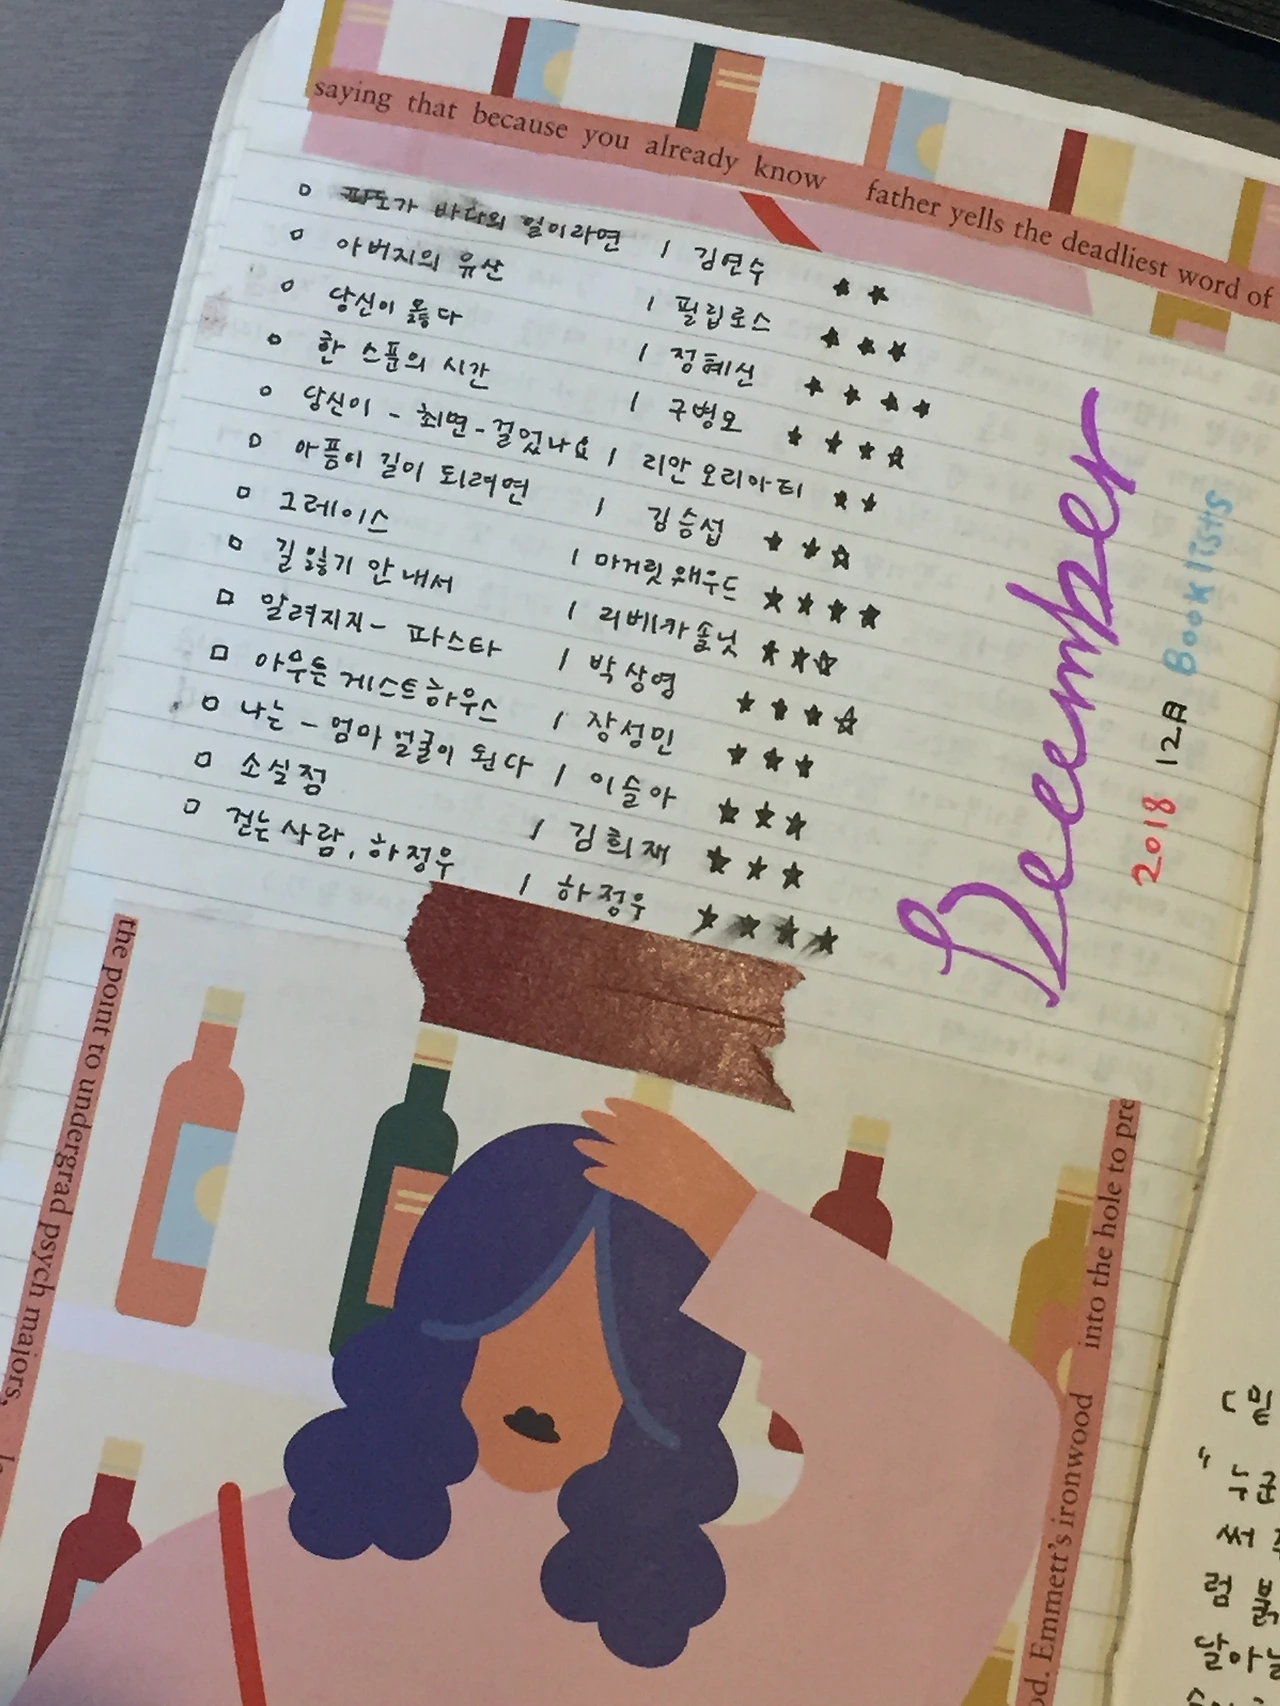 saying that because you already know father yells the deadliest word of
□ 파도가 바다의 일이라면 / 김연수 ★★
□ 아버지의 유산 / 필립로스 ★★★
□ 당신이 옳다 / 정혜신 ★★★★
□ 한 스푼의 시간 / 구병모 ★★★☆
□ 당신이 - 최면 - 걸었나요 / 리안 오리아티 ★★
□ 아픔이 길이 되려면 / 김승섭 ★★☆
□ 그레이스 / 마거릿 애우드 ★★★★
□ 길 잃기 안내서 / 리베카 솔닛 ★★☆
□ 알려지지 - 파스타 / 박상영 ★★★☆
□ 아무튼 게스트하우스 / 장성민 ★★★
□ 나는 - 엄마 얼굴이 된다 / 이슬아 ★★★
□ 소실점 / 김희재 ★★★
□ 걷는 사람, 하정우 / 하정우 ★★★★
December
2018 12月 Booklists
the point to undergrad psych majors,
into the hole to pre
od. Emmett's ironwood
「밑
" 누군
써
럼 붉
달아날